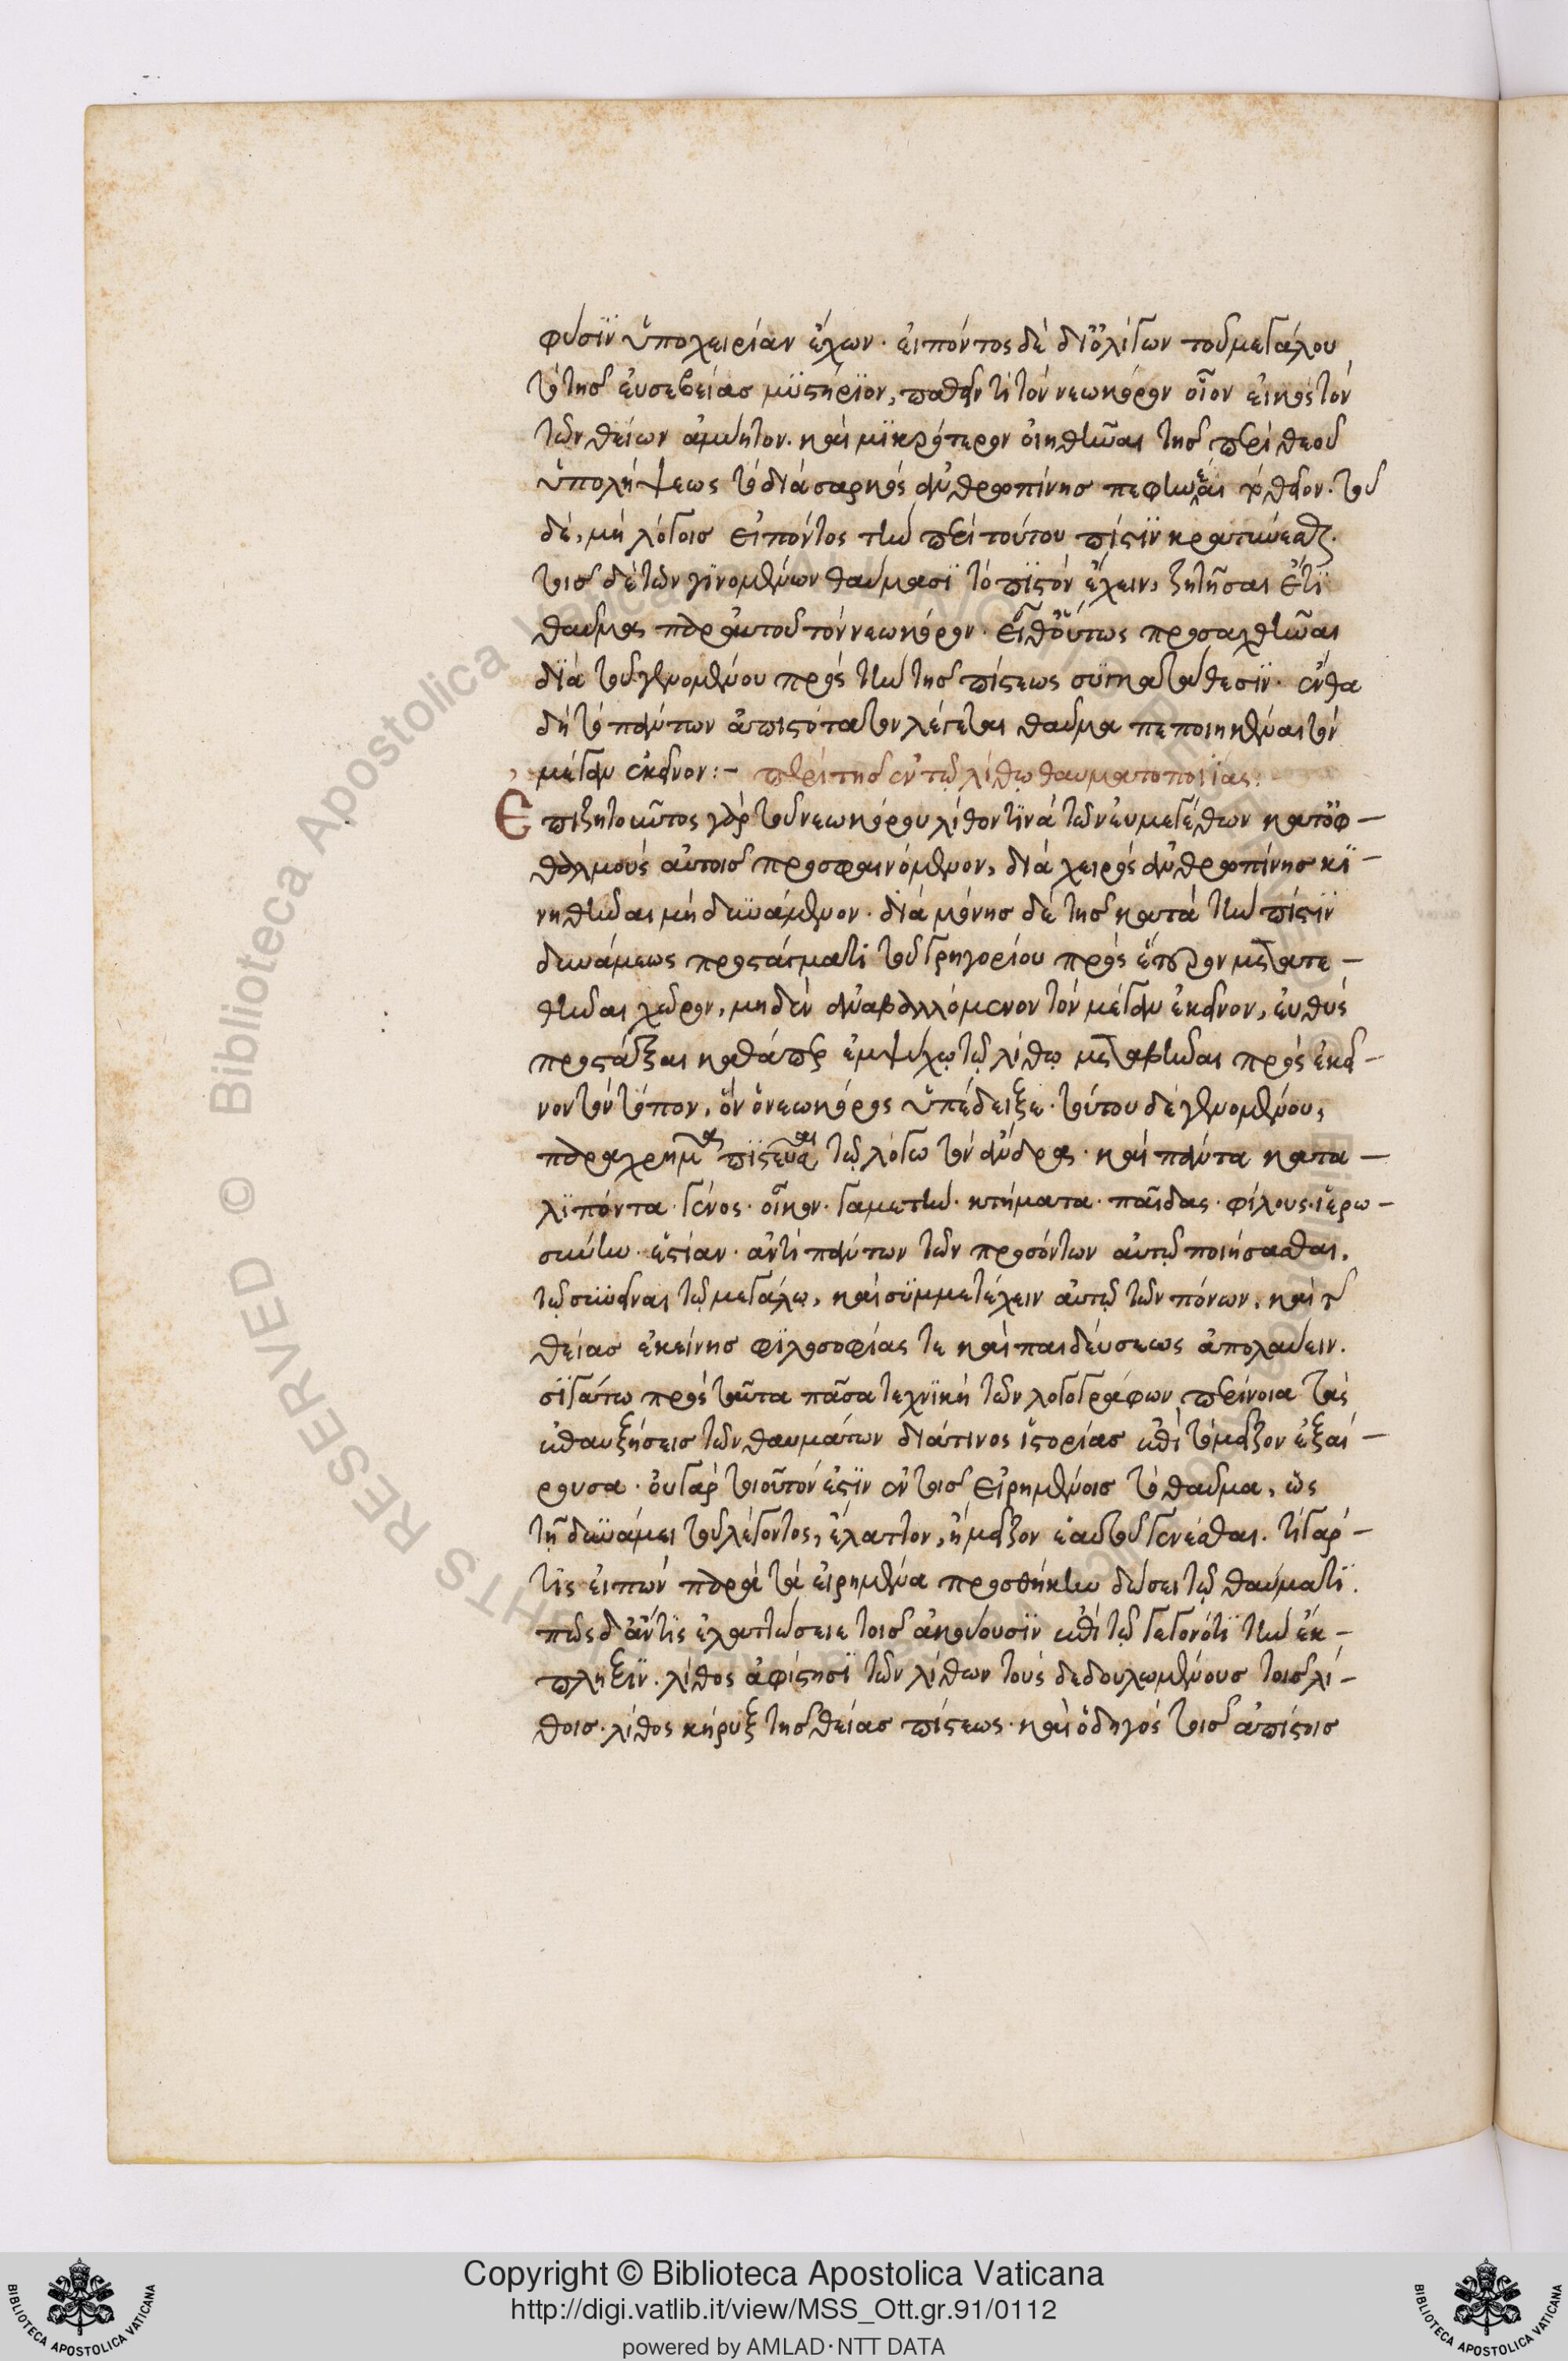 φύσϊν ὑποχειρίαν ἔχων. εἰπόντος δὲ δι ὀλίγων τοῦ μεγάλου
τὸ τῆς εὐσεβείας μϋστήρϊον, παθεῖν τὶ τὸν νεωκόρον οἷον εἰκὸς τὸν
τῶν θείων ἀμύητον. καὶ μϊκρότερον οἰηθῆναι τῆς περὶ θεοῦ
ὑπολήψεως τὸ διὰ σαρκὸς ἀνθρωπίνης πεφηνέναι τὸ θεῖον. τοῦ
δὲ, μὴ λόγοις εἰπόντος τὴν περὶ τούτου πίστϊν κρατύνεσθαι.
τοῖς δὲ τῶν γϊνομένων θαύμασϊ τὸ πϊστὸν ἔχειν, ζητῆσαι ἔτϊ
θαῦμα παρ αὐτοῦ τὸν νεωκόρον. εἶθ οὕτως προσαχθῆναι
δϊὰ τοῦ γενομένου πρὸς τὴν τῆς πίστεως συγκατάθεσϊν. ἔνθα
δὴ τὸ πάντων ἀπιστότατον λέγεται θαῦμα πεποιηκέναι τὸν
μέγαν ἐκεῖνον:– περὶ τῆς ἐν τῷ λίθῳ θαυματοποιΐας:
Ἐπιζητοῦντος γὰρ τοῦ νεωκόρου λίθον τϊνὰ τῶν εὐμεγέθων κατ ὀφ–
θαλμοὺς αὐτοῖς προσφαινόμενον, διὰ χειρὸς ἀνθρωπίνης κϊ–
νηθῆναι μὴ δυνάμενον. διὰ μόνης δὲ τῆς κατὰ τὴν πίστϊν
δυνάμεως προστάγματι τοῦ Γρηγορίου πρὸς ἕτερον μετατε–
θῆναι χῶρον, μηδὲν ἀναβαλλόμενον τὸν μέγαν ἐκεῖνον, εὐθὺς
προστάξαι καθάπερ ἐμψύχῳ τῷ λίθῳ μεταβῆναι πρὸς ἐκεῖ–
νον τὸν τόπον, ὃν ὁ νεωκόρος ὑπέδειξε. τούτου δὲ γενομένου,
παραχρῆμα πϊστεῦσαι τῷ λόγω τὸν ἄνδρα. καὶ πάντα κατα–
λϊπόντα. γένος. οἶκον. γαμετὴν. κτήματα. παῖδας. φίλους. ἱερω–
σύνην. ἑστίαν. ἀντὶ πάντων τῶν προσόντων αὐτῷ ποιήσασθαι,
τῷ συνεῖναι τῷ μεγάλῳ, καὶ συμμετέχειν αὐτῷ τῶν πόνων, καὶ τῆς
θείας ἐκείνης φϊλοσοφίας τε καὶ παιδεύσεως ἀπολαύειν.
σϊγάτω πρὸς ταῦτα πᾶσα τεχνϊκὴ τῶν λογογράφων περίνοια τὰς
ἐπαυξήσεις τῶν θαυμάτων διά τινος ἱστορίας ἐπὶ τὸ μεῖζον ἐξαί–
ρουσα. οὐ γὰρ τοιοῦτόν ἐστϊν ἐν τοῖς εἰρημένοις τὸ θαῦμα, ὡς
τῇ δυνάμει τοῦ λέγοντος, ἔλαττον, ἢ μεῖζον ἑαυτοῦ γενέσθαι. τί γάρ–
τϊς εἰπὼν παρὰ τὰ εἰρημένα προσθήκην δώσει τῷ θαύματϊ.
πῶς δ ἄν τϊς ἐλαττώσειε τοῖς ἀκούουσϊν ἐπὶ τῷ γεγονότϊ τὴν ἔκ–
πληξϊν. λίθος ἀφίστησϊ τῶν λίθων τοὺς δεδουλωμένους τοῖς λί–
θοις. λίθος κήρυξ τῆς θείας πίστεως. καὶ ὁδηγὸς τοῖς ἀπίστοις
Copyright © Biblioteca Apostolica Vaticana
http://digi.vatlib.it/view/MSS_Ott.gr.91/0112
powered by AMLAD·NTT DATA